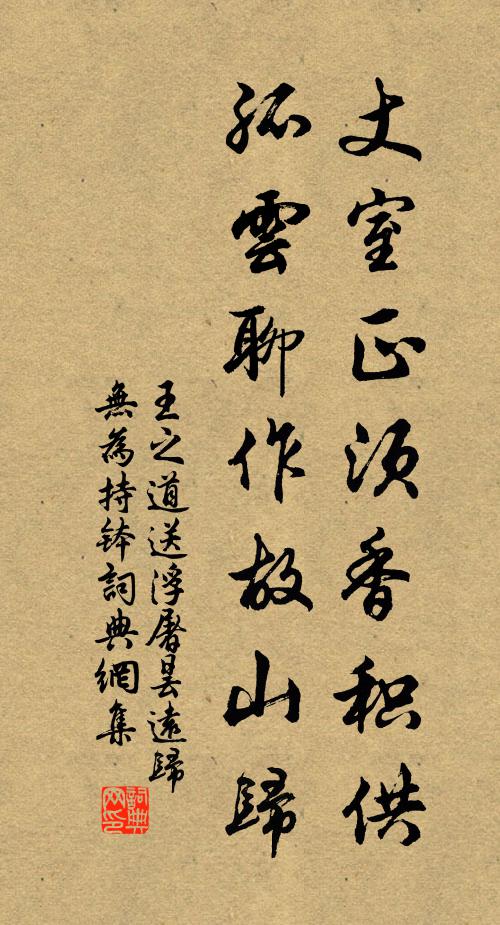 丈室正须香积供
孤雲聊作故山歸
王之道送浮屠曇遠歸
無為持钵詞典網集
詞典网印